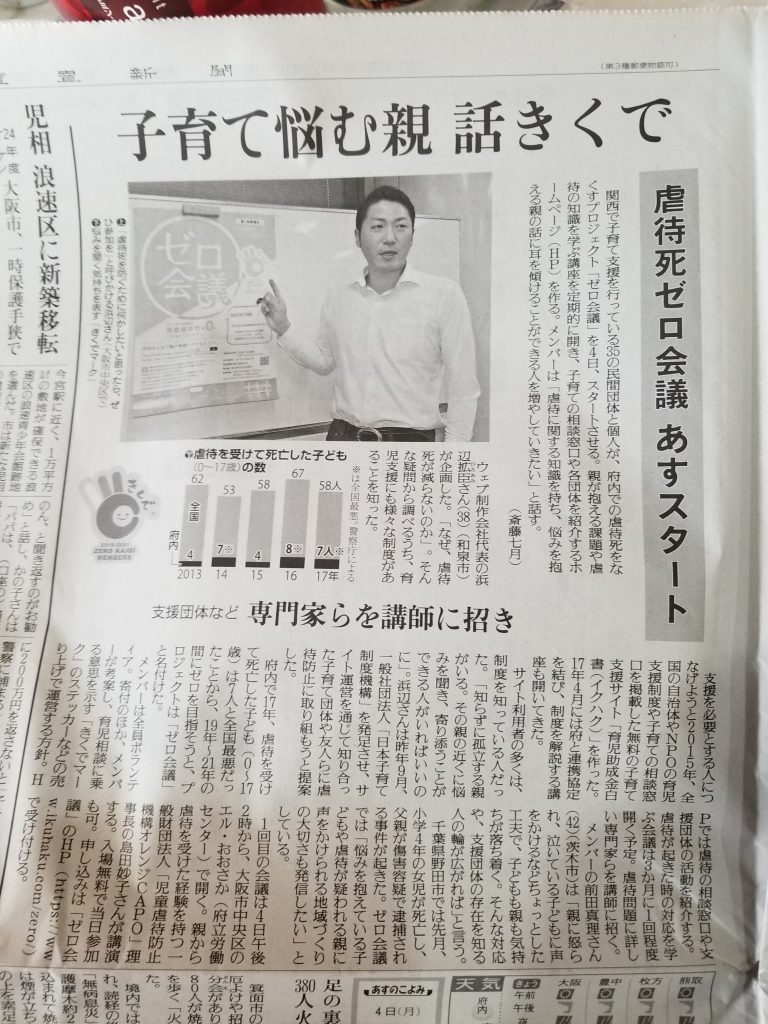 (第3種郵便物認可)
読賣新聞
子育て悩む親 話きくで
虐待死ゼロ会議 あすスタート
関西で子育て支援を行っている35の民間団体と個人が、府内での虐待死をな
くすプロジェクト「ゼロ会議」を4日、スタートさせる。親が抱える課題や虐
待の知識を学ぶ講座を定期的に開き、子育ての相談窓口や各団体を紹介するホ
ームページ(HP)を作る。メンバーは「虐待に関する知識を持ち、悩みを抱
える親の話に耳を傾けることができる人を増やしていきたい」と話す。
(斎藤七月)
ゼロ
会議
㊤「虐待死を防ぐために何かしたいと思ったら、ぜ
ひ参加を」と呼びかける浜辺さん(大阪市中央区で)
㊦悩みを聞く気持ちを表す「きくでマーク」
ウェブ制作会社代表の浜
辺拡臣さん(38)(和泉市)
が企画した。「なぜ、虐待
死が減らないのか」。そん
な疑問から調べるうち、育
児支援にも様々な制度があ
ることを知った。
虐待を受けて死亡した子ども
(0〜17歳)の数
※は全国最悪。警察庁による
62 53 58 67 58人
全国
府内
4 7※ 4 8※ 7人※
2013 14 15 16 17年
きくで
2018-2021
ZERO KAIGI
MEMBERS
支援団体など 専門家らを講師に招き
支援を必要とする人につ
なげようと2015年、全
国の自治体やNPOの育児
支援制度や子育ての相談窓
口を掲載した無料の子育て
支援サイト「育児助成金白
書(イクハク)」を作った。
17年4月には府と連携協定
を結び、制度を解説する講
座も開いてきた。
サイト利用者の多くは、
制度を知っている人だっ
た。「知らずに孤立する親
がいる。その親の近くに悩
みを聞き、寄り添うことが
できる人がいればいいの
に」。浜辺さんは昨年9月、
一般社団法人「日本子育て
制度機構」を発足させ、サ
イト運営を通じて知り合っ
た子育て団体や友人らに虐
待防止に取り組もうと提案
した。
府内で17年、虐待を受け
て死亡した子ども(0〜17
歳)は7人と全国最悪だっ
たことから、19年〜21年の
間にゼロを目指そうと、プ
ロジェクトは「ゼロ会議」
と名付けた。
メンバーは全員ボランテ
ィア。寄付のほか、メンバ
ーが考案し、育児相談に乗
る意思を示す「きくでマー
ク」のステッカーなどの売
り上げで運営する方針。H
Pでは虐待の相談窓口や支
援団体の活動を紹介する。
虐待が起きた時の対応を学
ぶ会議は3か月に1回程度
開く予定。虐待問題に詳し
い専門家らを講師に招く。
メンバーの前田真理さん
(42)(茨木市)は「親に怒ら
れ、泣いている子どもに声
をかけるなどちょっとした
工夫で、子どもも親も気持
ちが落ち着く。そんな対応
や、支援団体の存在を知る
人の輪が広がれば」と言う。
千葉県野田市では先月、
小学4年の女児が死亡し、
父親が傷害容疑で逮捕され
る事件が起きた。ゼロ会議
では「悩みを抱えている子
どもや虐待が疑われる親に
声をかけられる地域づくり
の大切さも発信したい」と
している。
1回目の会議は4日午後
2時から、大阪市中央区の
エル・おおさか(府立労働
センター)で開く。親から
虐待を受けた経験を持つ一
般財団法人「児童虐待防止
機構オレンジCAPO」理
事長の島田妙子さんが講演
する。入場無料で当日参加
も可。申し込みは「ゼロ会
議」のHP(https://ww
w.ikuhaku.com/zero/)
で受け付ける。
児相 浪速区に新築移転
24年度 大阪市、一時保護手狭で
今宮駅に近く、1万平方
けの敷地が確保できる浪
速区の浪速青少年会館跡地
を選んだ。市は新たな児相
のん、と聞き返すのがお勧
め」と話し、かの子さんは
「パパは、
に200万円を返さないと
警察に捕まる
あすのこよみ
4日(月)
天気
府内
きょう
午前
午後
夜
大阪
豊中
枚方
熊取
足の裏
380人火
箕面市の
厄よけや招
分会があり
80人が焼
を歩く「火
境内では
れ、読経の後
「無病息災」
護摩木約2
込まれて焼
は煙が立ち
の上を素足